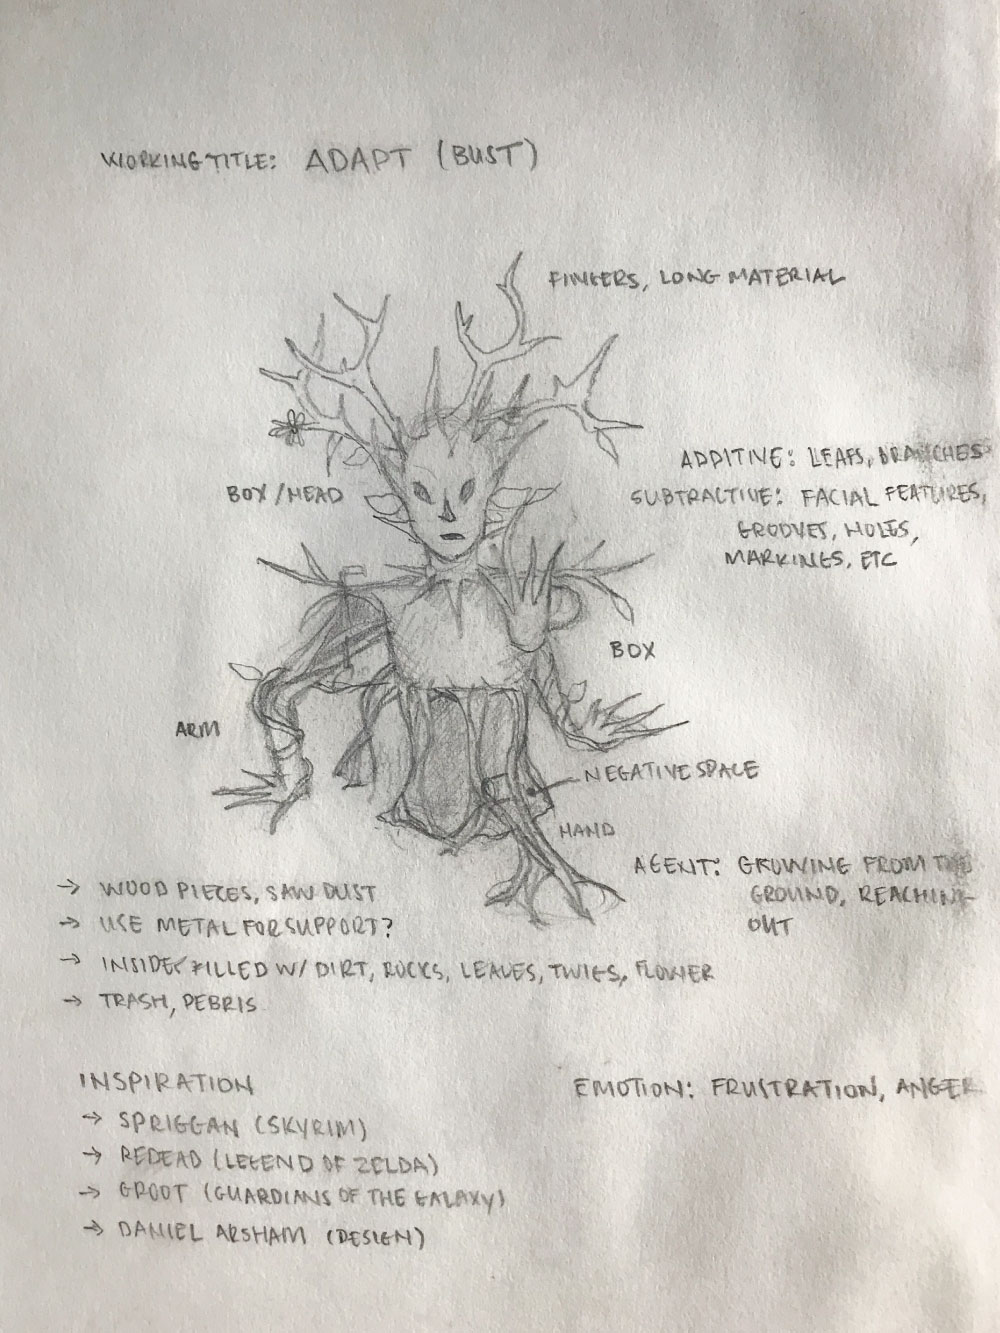 WORKING TITLE: ADAPT (BUST)
FINGERS, LONG MATERIAL
ADDITIVE: LEAFS, BRANCHES
BOX/HEAD
SUBTRACTIVE: FACIAL FEATURES,
GROOVES, HOLES,
MARKINGS, ETC
BOX
ARM
NEGATIVE SPACE
HAND
AGENT: GROWING FROM THE
GROUND, REACHING
OUT
→ WOOD PIECES, SAW DUST
→ USE METAL FOR SUPPORT?
→ INSIDE FILLED W/ DIRT, ROCKS, LEAVES, TWIGS, FLOWER
→ TRASH, DEBRIS
INSPIRATION
EMOTION: FRUSTRATION, ANGER
→ SPRIGGAN (SKYRIM)
→ REDEAD (LEGEND OF ZELDA)
→ GROOT (GUARDIANS OF THE GALAXY)
→ DANIEL ARSHAM (DESIGN)